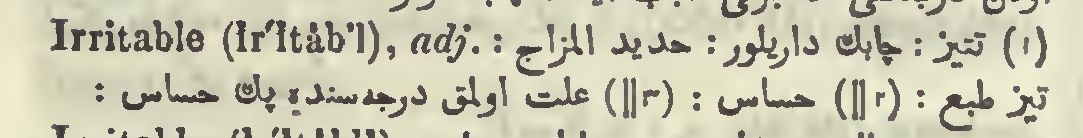 Irritable (ĭr′ĭtåb’l), adj. (۱) تتیز : چابك داریلور : حدید المزاج :
تیز طبع : (||۲) حساس : (||۳) علت اولمق درجه‌سنده پك حساس :